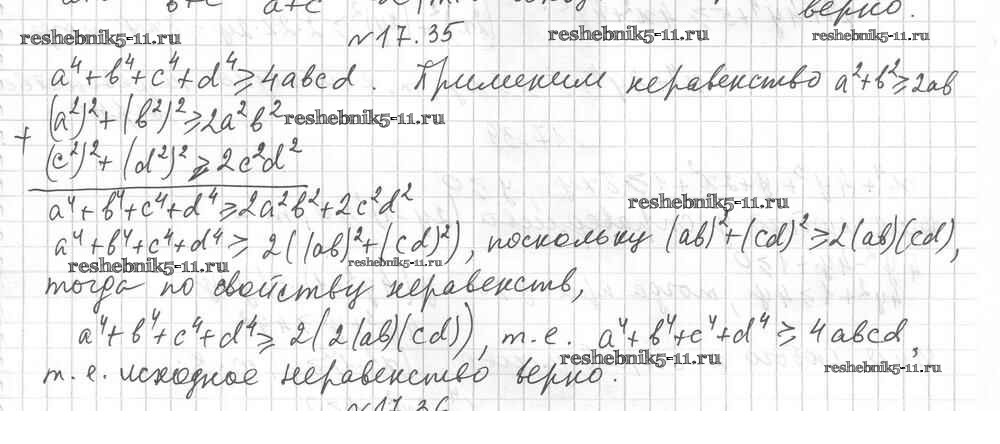 верно.
reshebnik5-11.ru reshebnik5-11.ru reshebnik5-11.ru
№17.35
a⁴+b⁴+c⁴+d⁴≥4abcd. Применим неравенство a²+b²≥2ab
+ (a²)²+(b²)²≥2a²b² reshebnik5-11.ru
(c²)²+(d²)²≥2c²d²
a⁴+b⁴+c⁴+d⁴≥2a²b²+2c²d² reshebnik5-11.ru
a⁴+b⁴+c⁴+d⁴≥ 2((ab)²+(cd)²), поскольку (ab)²+(cd)²≥2(ab)(cd),
reshebnik5-11.ru reshebnik5-11.ru
тогда по свойству неравенств,
a⁴+b⁴+c⁴+d⁴≥ 2(2(ab)(cd)), т.е. a⁴+b⁴+c⁴+d⁴≥4abcd,
reshebnik5-11.ru reshebnik5-11.ru
т.е. исходное неравенство верно.
№17.36